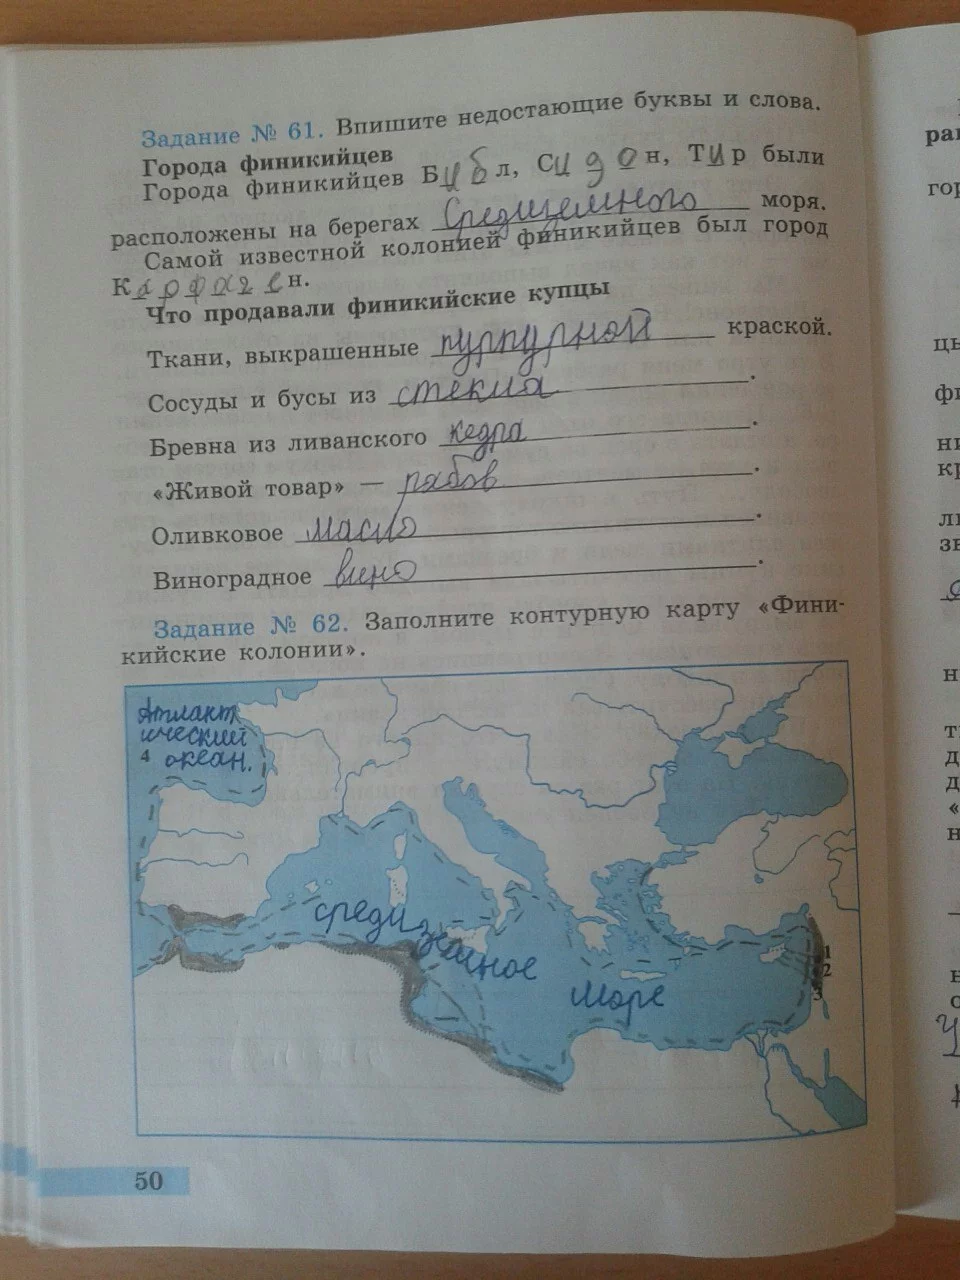 Задание № 61. Впишите недостающие буквы и слова.
Города финикийцев
Города финикийцев Библ, Сидон, Тир были
расположены на берегах Средиземного моря.
Самой известной колонией финикийцев был город
Карфаген.
Что продавали финикийские купцы
Ткани, выкрашенные пурпурной краской.
Сосуды и бусы из стекла.
Бревна из ливанского кедра.
«Живой товар» — рабов.
Оливковое масло.
Виноградное вино.
Задание № 62. Заполните контурную карту «Фини-
кийские колонии».
Атлант
ический
4 океан.
средиземное
море
1
2
3
50